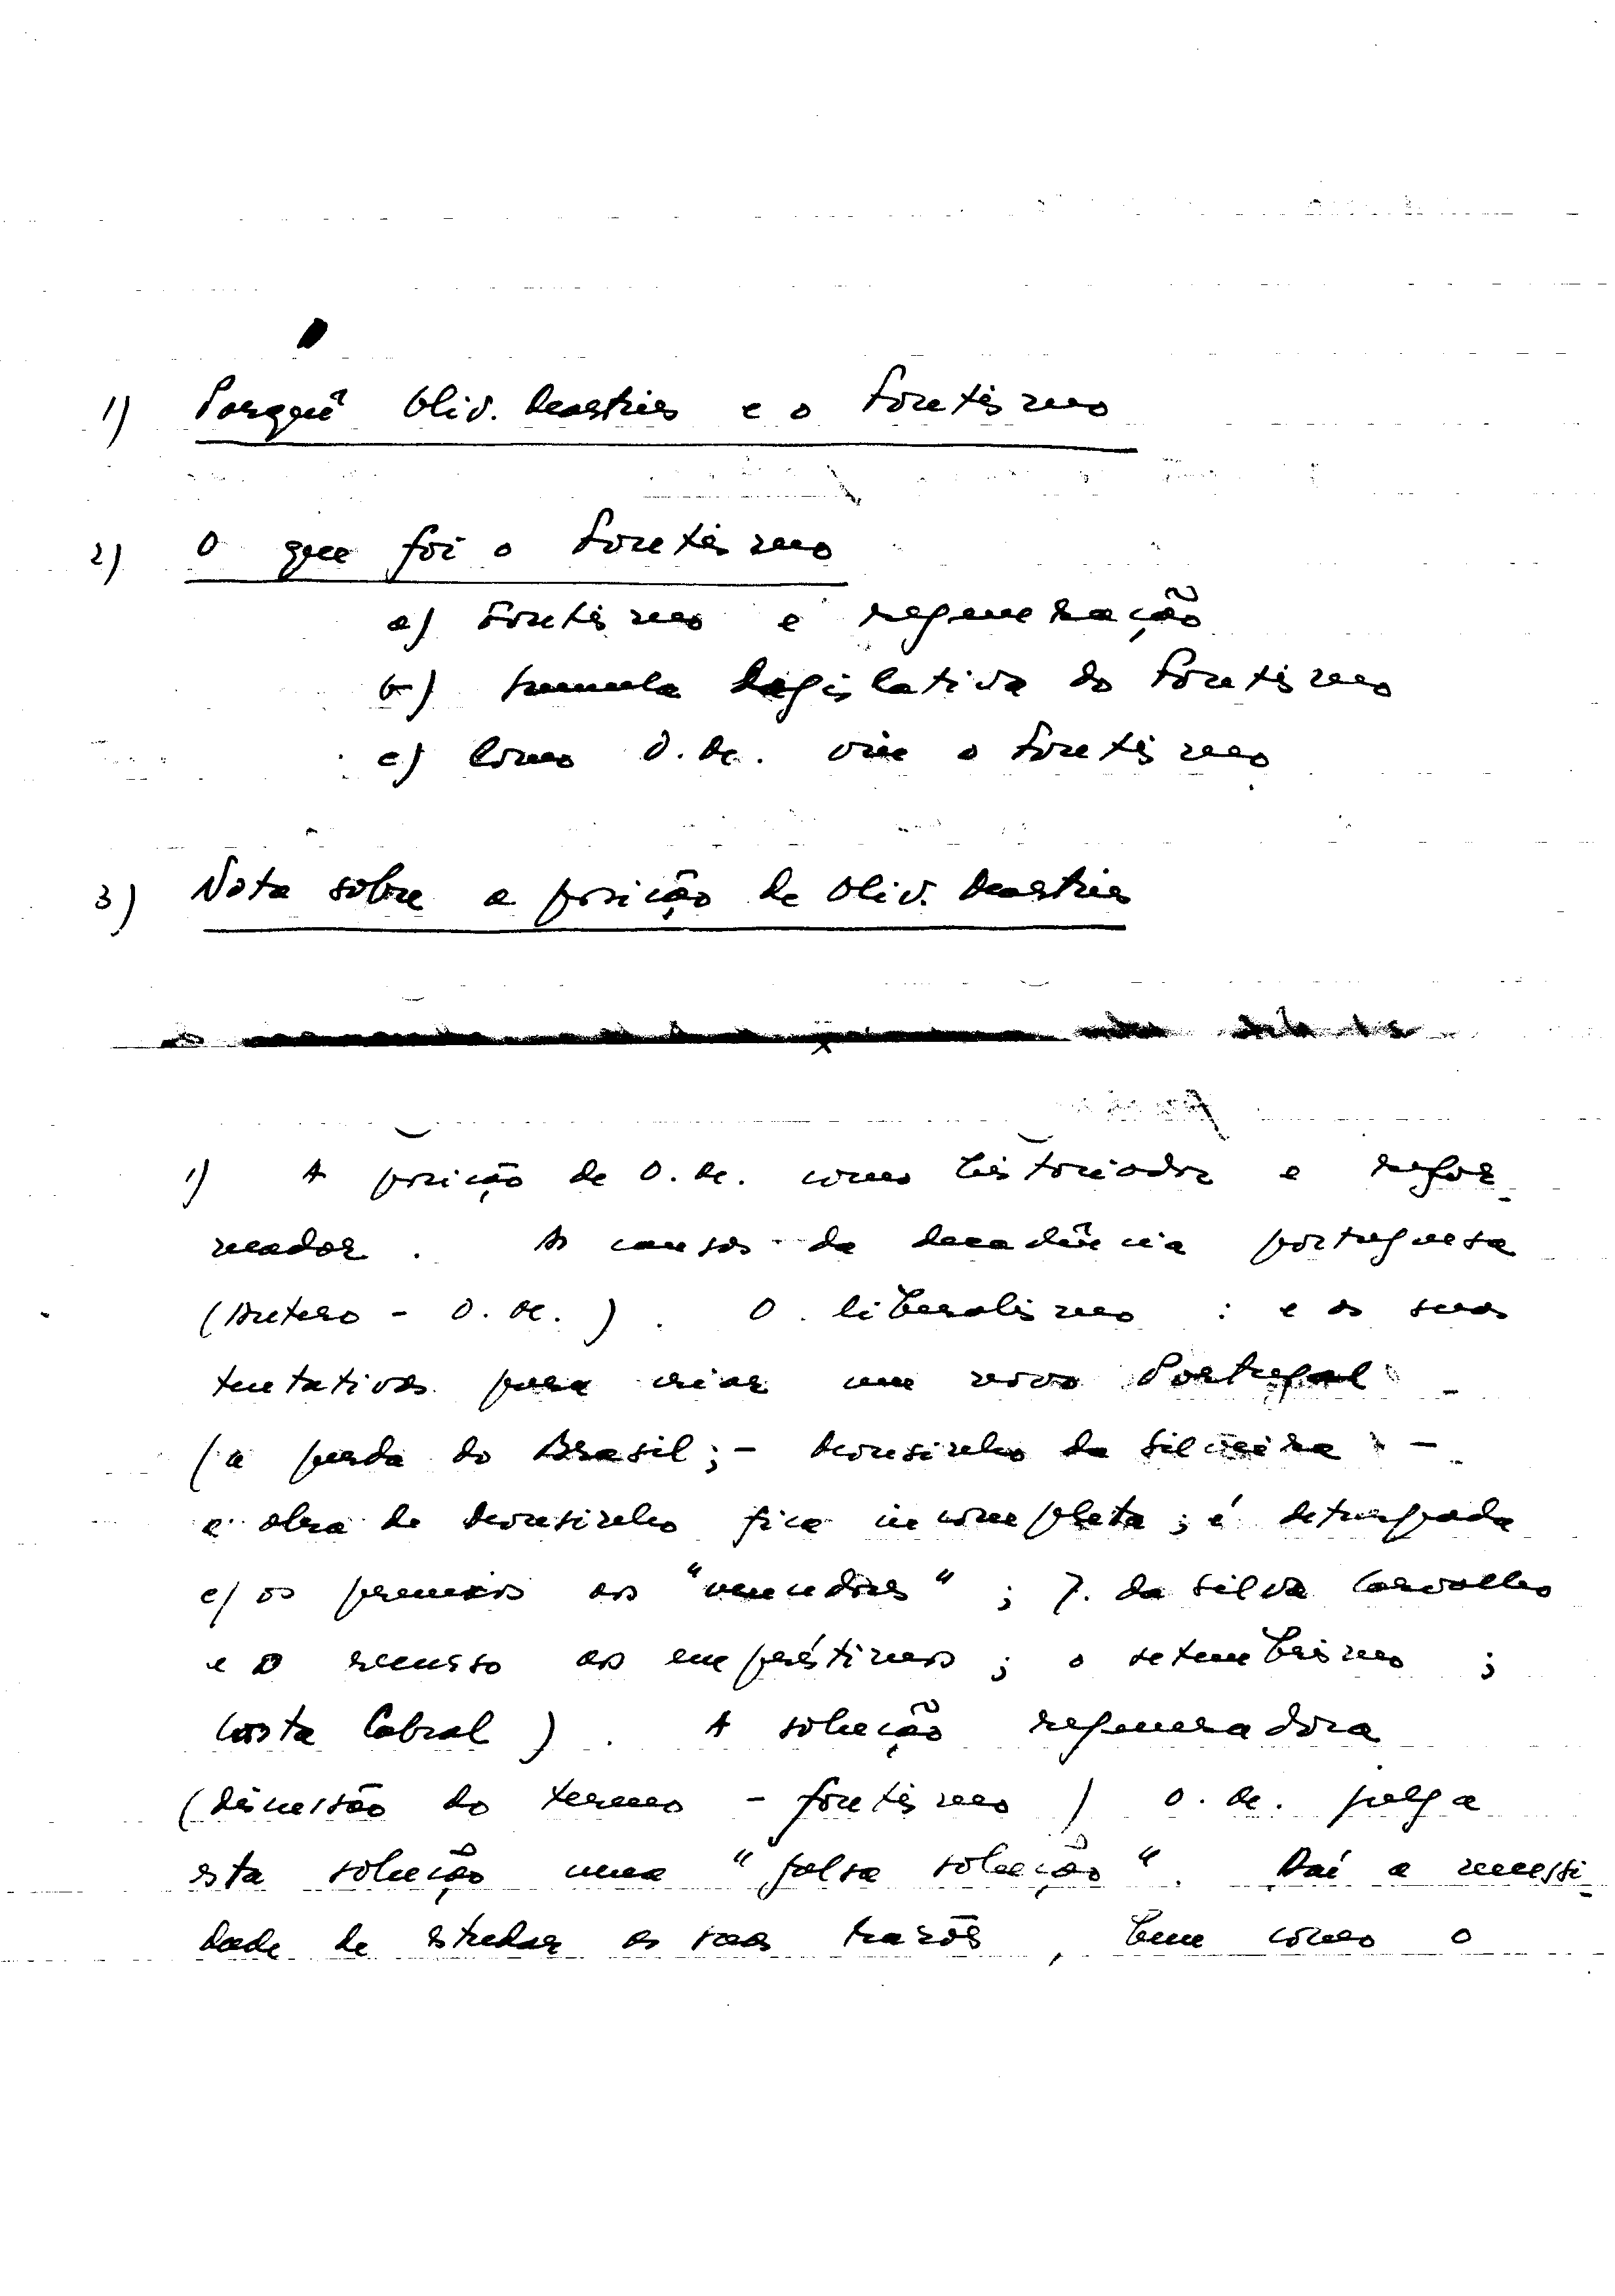 1) Porquê Oliv. Martins e o Fontismo
2) O que foi o Fontismo
a) Fontismo e regeneração
b) sumula legislativa do Fontismo
c) Como O. M. viu o Fontismo
3) Nota sobre a posição de Oliv. Martins
1) A posição de O. M. como historiador e refor
mador. As causas da decadência portuguesa
(Antero - O. M.). O liberalismo : e as suas
tentativas para criar um novo Portugal
(a perda do Brasil; - Mousinho da Silveira -
a obra de Mousinho fica incompleta; é deturpada
c/ os premios aos "vencedores"; J. da Silva Carvalho
e o recurso aos empréstimos; o setembrismo;
Costa Cabral). A solução regeneradora
(discussão do termo - fontismo) O. M. julga
esta solução uma "falsa solução". Daí a necessi
dade de estudar as suas razões, bem como o